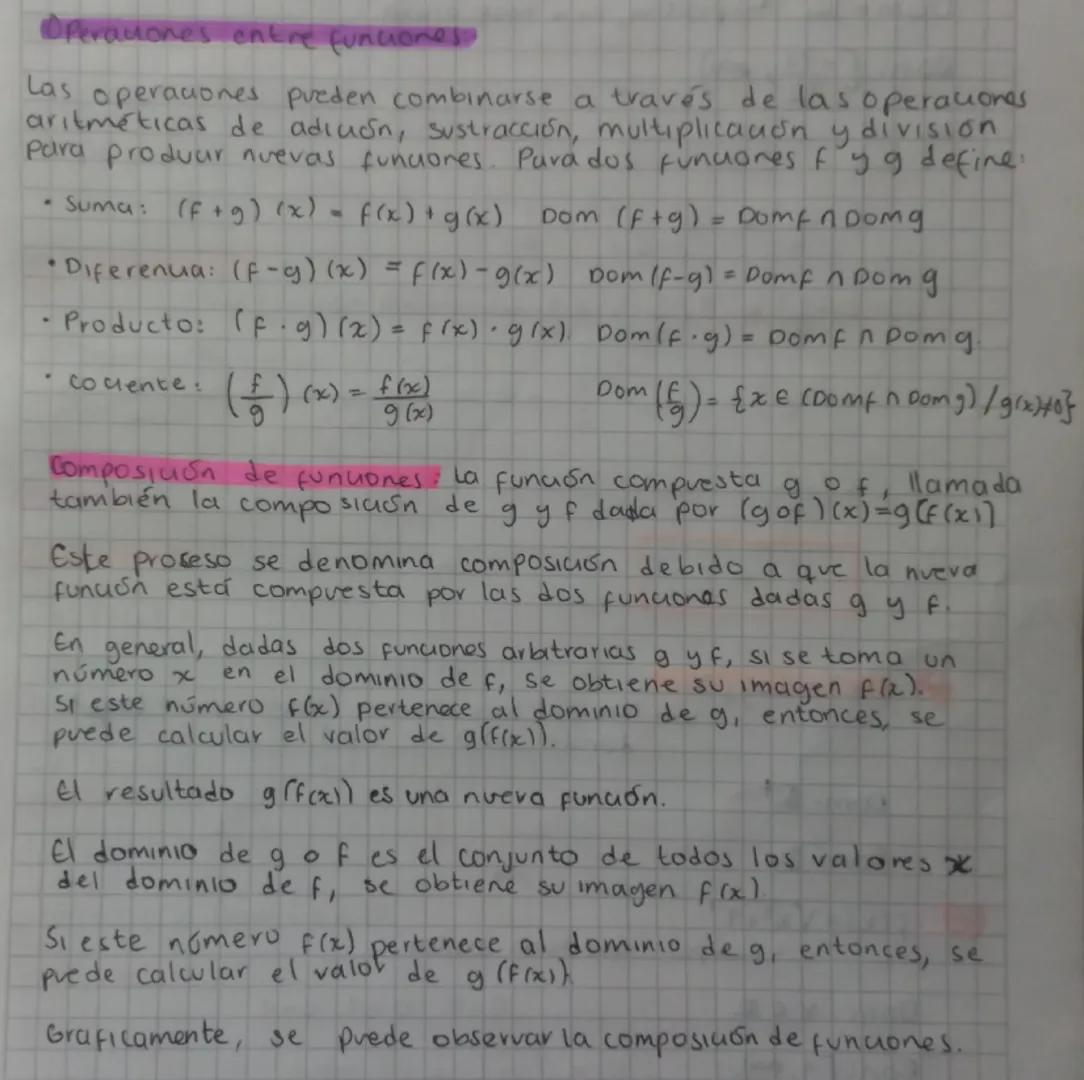 Operaciones entre funciones
Las operaciones pueden combinarse a través de las operaciones
aritméticas de adición, sustracción, multiplicación y división
para producir nuevas funciones. Para dos funciones f y g define:
• Suma: (f + g) (x) = f(x) + g(x) Dom (f+g) = Domf ∩ Domg
• Diferencia: (f - g) (x) = f(x) - g(x) Dom (f-g) = Domf ∩ Dom g
• Producto: (f · g) (x) = f(x) · g(x). Dom (f · g) = Domf ∩ Dom g.
• cociente: (f/g) (x) = f(x)/g(x) Dom (f/g) = {x ∈ (Domf ∩ Domg) / g(x)≠0}
Composición de funciones: La función compuesta g o f, llamada
también la composición de g y f dada por (g o f) (x) = g(f(x))
Este proseso se denomina composición debido a que la nueva
función está compuesta por las dos funciones dadas g y f.
En general, dadas dos funciones arbitrarias g y f, si se toma un
número x en el dominio de f, se obtiene su imagen f(x).
Si este número f(x) pertenece al dominio de g, entonces, se
puede calcular el valor de g(f(x)).
El resultado g(f(x)) es una nueva función.
El dominio de g o f es el conjunto de todos los valores x
del dominio de f, se obtiene su imagen f(x).
Si este número f(x) pertenece al dominio de g, entonces, se
puede calcular el valor de g(f(x)).
Graficamente, se puede observar la composición de funciones.